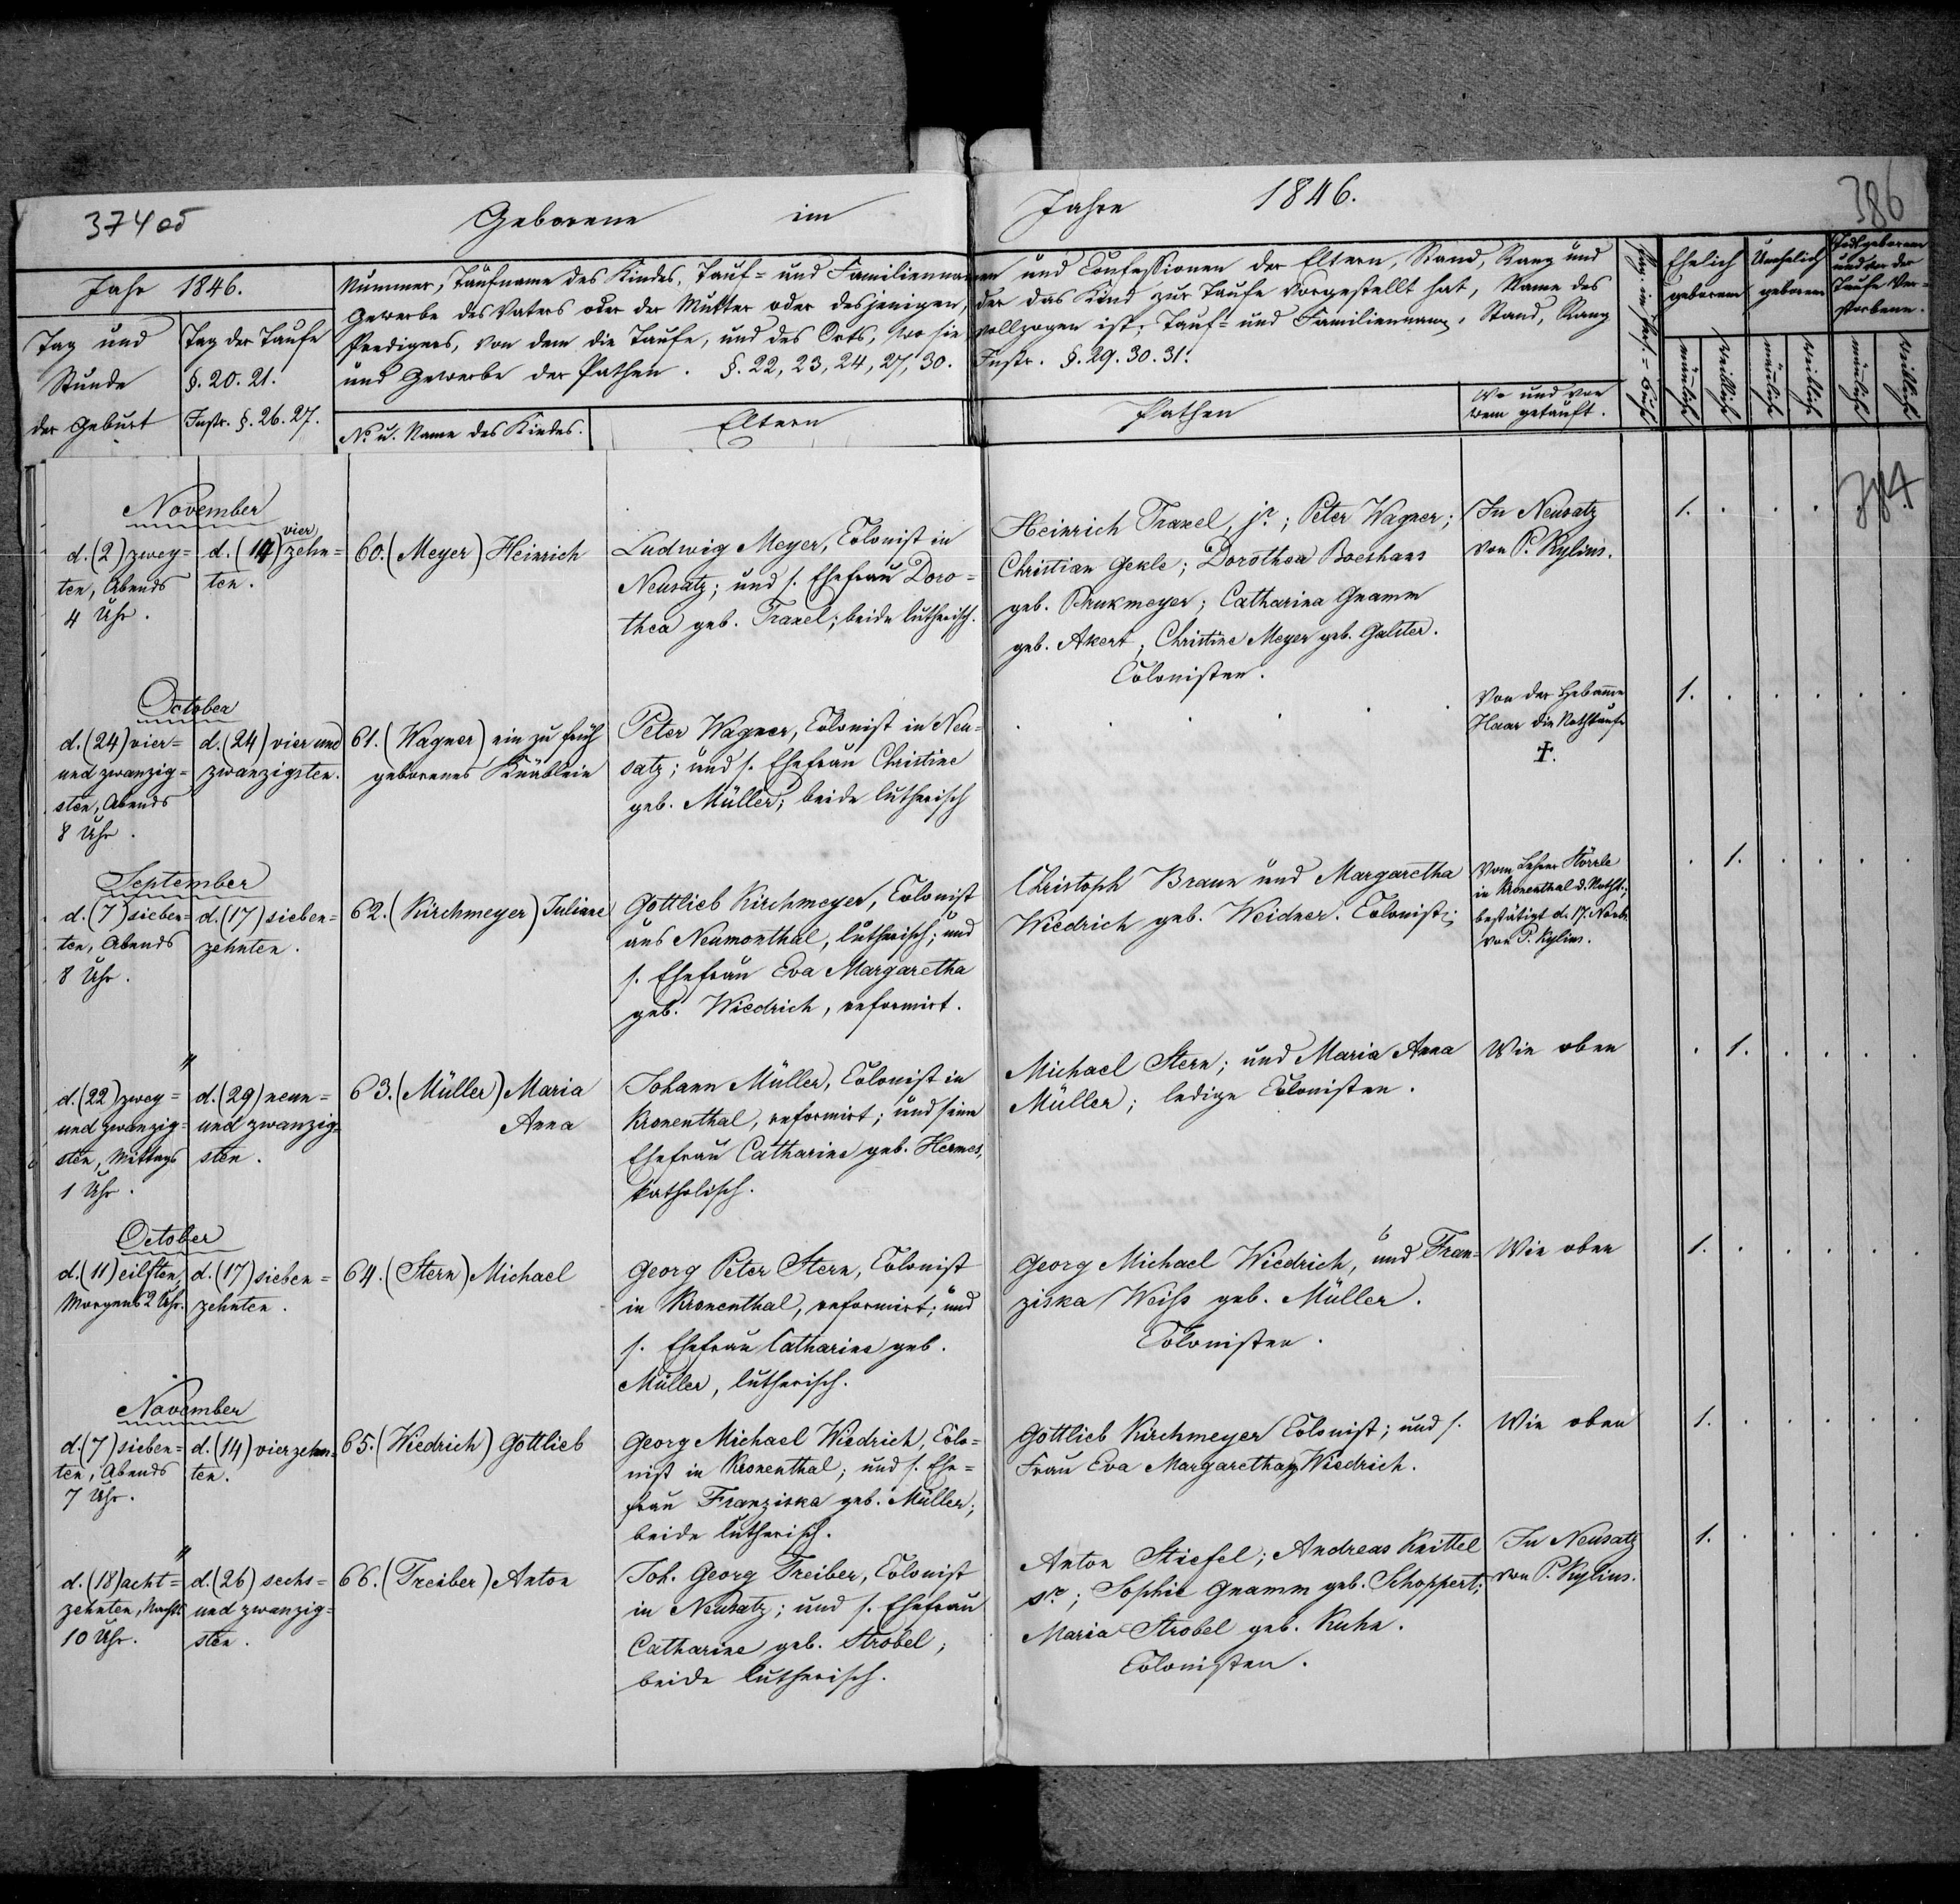 374 об
Geborene im
Jahre 1846.
386
Jahr 1846.
Tag und
Stunde
der Geburt
Tag der Taufe
§. 20. 21.
Instr. §. 26. 27.
Nummer, Taufname des Kindes, Tauf- und Familiennamen und Confessionen der Eltern, Stand, Rang und
Gewerbe des Vaters oder der Mutter oder desjenigen, der das Kind zur Taufe vorgestellt hat, Name des
Predigers, von dem die Taufe, und des Orts, wo sie vollzogen ist; Tauf- und Familienname, Stand, Rang
und Gewerbe der Pathen. §. 22, 23, 24, 27, 30. Instr. §. 29. 30. 31.
No u. Name des Kindes.
Eltern
Pathen
Wo und von
wem getauft.
Ehelich
geboren
Unehelich
geboren
Todtgeborene
und vor der
Taufe Ver=
storbene.
männlich
weiblich
männlich
weiblich
männlich
weiblich
November
d. (2) zwey=
ten, Abends
4 Uhr.
vier
d. (14) zehn=
ten.
60. (Meyer) Heinrich
Ludwig Meyer, Colonist in
Neusatz; und s. Ehefrau Doro=
thea geb. Traxel; beide lutherisch.
Heinrich Traxel, jr.; Peter Wagner;
Christian Gekle; Dorothea Boeshans
geb. Schukmeyer; Catharina Gramm
geb. Akert, Christine Meyer geb. Galster.
Colonisten.
In Neusatz
von P. Kylius.
1. . . .
October
d. (24) vier=
und zwanzig=
sten, Abends
8 Uhr.
d. (24) vier und
zwanzigsten.
61. (Wagner) ein zu früh
geborenes Knäblein
Peter Wagner, Colonist in Neu=
satz; und s. Ehefrau Christine
geb. Müller; beide lutherisch
. . . .
Von der Hebamme
Haar die Nothtaufe
✝.
1. . . . . .
September
d. (7) sieben=
ten, Abends
8 Uhr.
d. (17) sieben=
zehnten.
62. (Kirchmeyer) Juliane
Gottlieb Kirchmeyer, Colonist
aus Neumonthal, lutherisch; und
s. Ehefrau Eva Margaretha
geb. Wiedrich, reformirt.
Christoph Braun und Margaretha
Wiedrich geb. Weidner. Colonist;
Vom Lehrer Störzle
in Kronenthal d. Notht.;
bestätigt d. 17. Novb.
von P. Kylius.
. 1. . . . .
"
d. (22) zwey=
und zwanzig=
sten, Mittags
1 Uhr.
d. (29) neun=
und zwanzig=
sten.
63. (Müller) Maria
Anna
Johann Müller, Colonist in
Kronenthal, reformirt; und seine
Ehefrau Catharine geb. Hermes,
katholisch.
Michael Stern; und Maria Anna
Müller; ledige Colonisten.
Wie oben
. 1. . . . .
October
d. (11) eilften,
Morgens 2 Uhr.
d. (17) sieben=
zehnten.
64. (Stern) Michael
Georg Peter Stern, Colonist
in Kronenthal, reformirt; und
s. Ehefrau Catharine geb.
Müller, lutherisch.
Georg Michael Wiedrich, und Fran=
ziska Weiß geb. Müller.
Colonisten.
Wie oben
1. . . . . .
November
d. (7) sieben=
ten, Abends
7 Uhr.
d. (14) vierzehn=
ten.
65. (Wiedrich) Gottlieb
Georg Michael Wiedrich, Colo=
nist in Kronenthal; und s. Ehe=
frau Franziska geb. Müller;
beide lutherisch.
Gottlieb Kirchmeyer Colonist; und s.
Frau Eva Margaretha g. Wiedrich.
Wie oben
1. . . . . .
"
d. (18) acht=
zehnten, Nachts
10 Uhr.
d. (26) sechs=
und zwanzig=
sten.
66. (Treiber) Anton
Joh. Georg Treiber, Colonist
in Neusatz; und s. Ehefrau
Catharine geb. Strobel;
beide lutherisch.
Anton Stiefel; Andreas Knittel
sr.; Sophie Gramm geb. Schoppert;
Maria Strobel geb. Kuhn.
Colonisten.
In Neusatz
von P. Kylius.
1. . . . . .